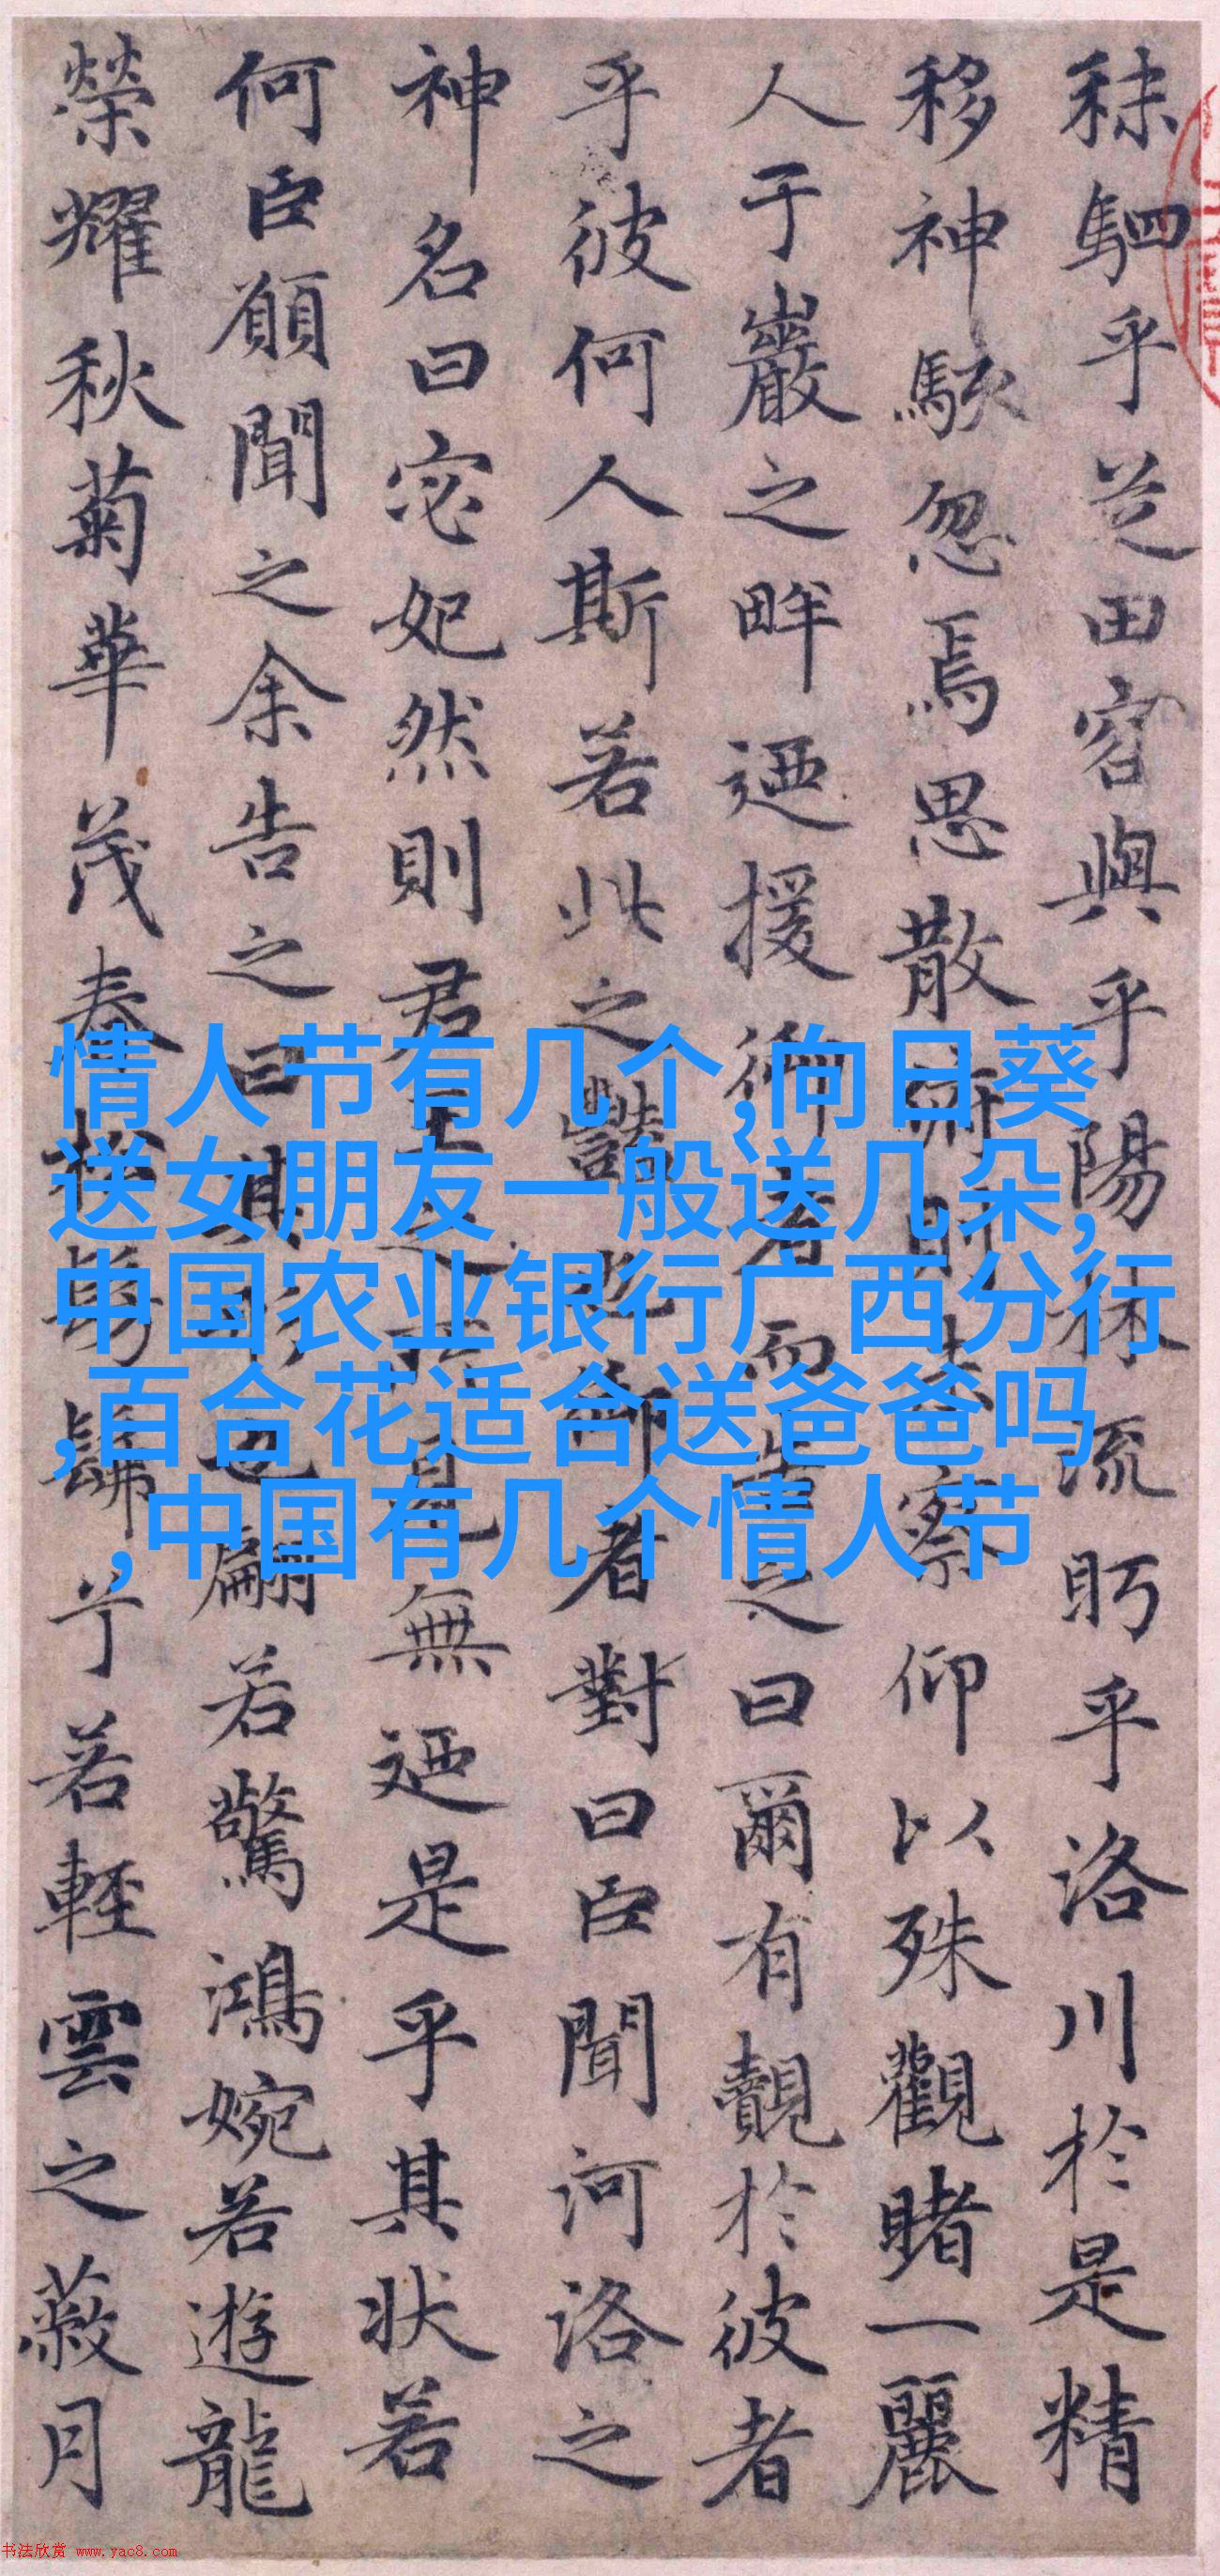 秣駟乎芝田容與乎陽林流眄乎洛川於是精
移神駭忽焉思散俯則未察仰以殊觀睹一麗
人于巖之畔迺援御者而告之曰爾有覿於彼者
乎彼何人斯若此之豔也御者對曰臣聞河洛之
神名曰宓妃然則君王之所見無迺是乎其状若
何臣願聞之余告之曰其形也翩若驚鴻婉若遊龍
榮耀秋菊華茂春松髣髴兮若輕雲之蔽月
情人节有几个,向日葵
送女朋友一般送几朵,
中国农业银行广西分行
,百合花适合送爸爸吗
,中国有几个情人节
书法欣赏 www.yac8.com